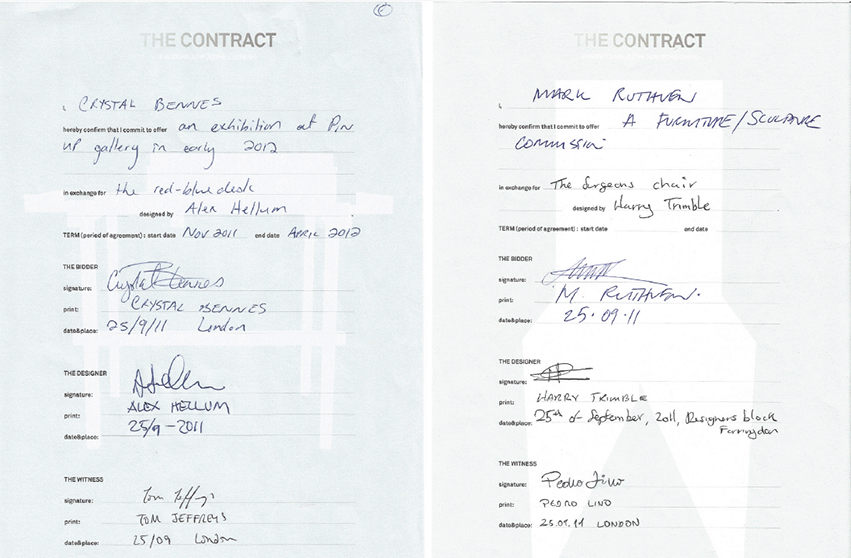 E
THE CONTRACT
I, CRYSTAL BENNES
hereby confirm that I commit to offer an exhibition at Pin
up gallery in early 2012
in exchange for the red-blue desk
designed by Alex Hellum
TERM (period of agreement) : start date Nov 2011 end date APRIL 2012
THE BIDDER
signature: Crystal Bennes
print: CRYSTAL BENNES
date&place: 25/9/11 London
THE DESIGNER
signature:
print: ALEX HELLUM
25/9-2011
date&place:
THE WITNESS
signature: Tom Jeffreys
print: TOM JEFFREYS
date&place: 25/09 London
THE CONTRACT
MARK RUTHVEN
hereby confirm that I commit to offer A FURNITURE/SCULPTURE
COMMISSION
in exchange for The Surgeons chair
designed by Harry Trimble
TERM (period of agreement) : start date end date
THE BIDDER
signature:
print: M. RUTHVEN.
date&place: 25.09.11
THE DESIGNER
signature:
print: HARRY TRIMBLE
date&place: 25th of September, 2011, Designers block
Farringdon
THE WITNESS
signature: Pedro Lino
print: PEDRO LINO
date&place: 25.09.11 LONDON